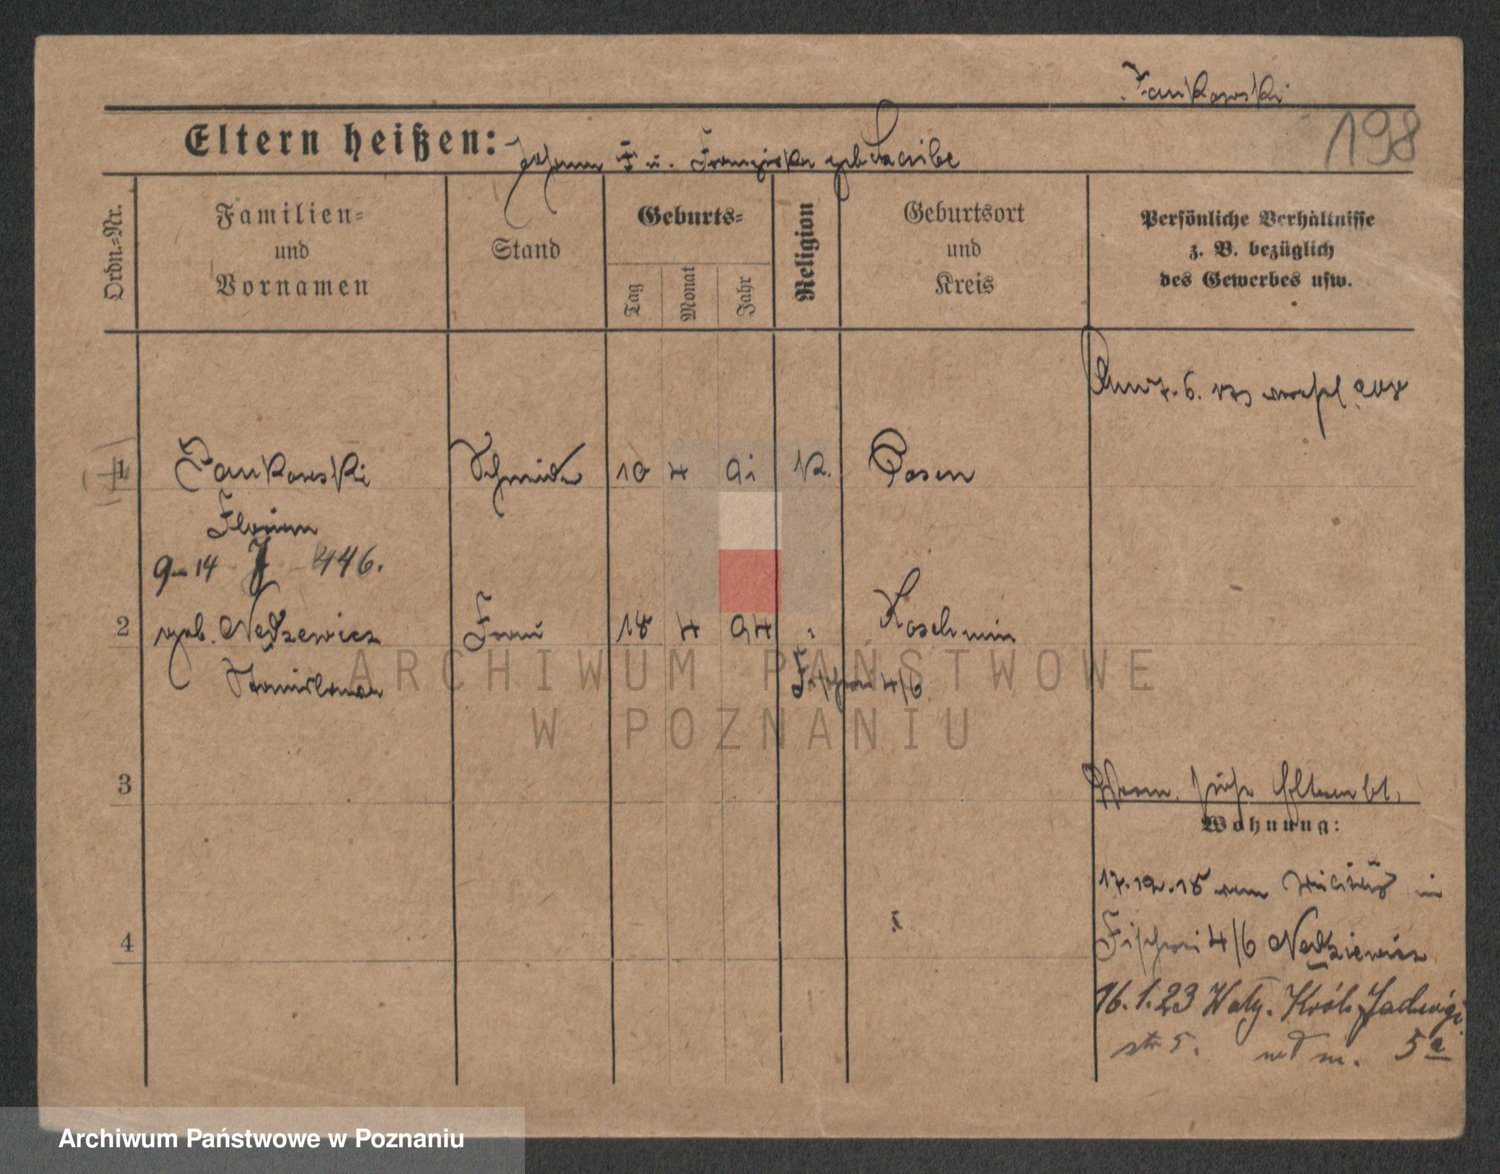 Jankowski
198
Eltern heißen: Johann J u. Franziska geb.
Ordn.-Nr.
Familien-
und
Vornamen
Stand
Geburts-
Tag
Monat
Jahr
Religion
Geburtsort
und
Kreis
Persönliche Verhältnisse
z. B. bezüglich
des Gewerbes usw.
1 Jankowski Schmied 10 4 91 K. Posen
Florian
14 J 446.
2 geb. Nedzewicz Frau 18 4 94 Koschmin
Stanislawa
Fischerei 4/6
3
Wohnung:
17.12.18 von in
4
Fischerei 4/6 Nedziewicz
16.1.23 Król. Jadwigi
str 5. m. 5a
ARCHIWUM PAŃSTWOWE
W POZNANIU
Archiwum Państwowe w Poznaniu